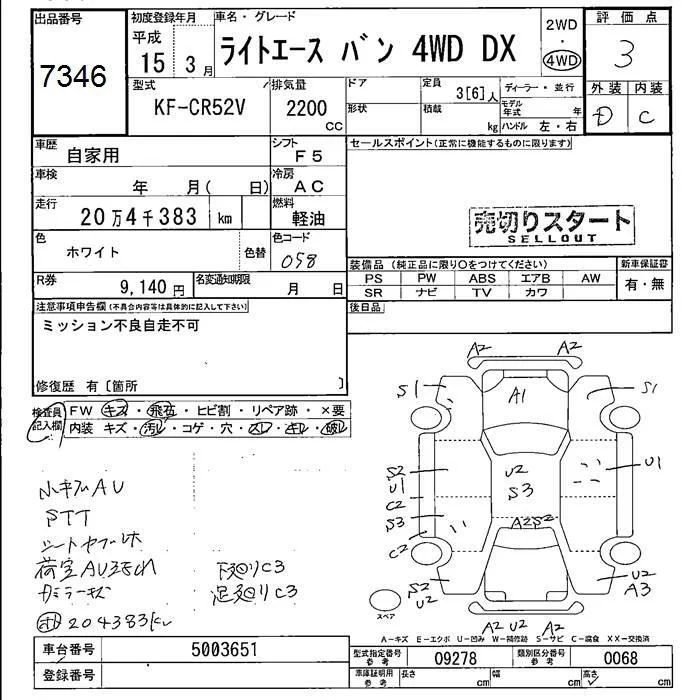 出品番号
7346
初度登録年月
平成
15 3月
車名・グレード
ライトエース バン 4WD DX
2WD
・
4WD
評価点
3
外装 内装
D C
型式
KF-CR52V
排気量
2200
CC
ドア
形状
定員
3[6]人
積載
kg
ディーラー・並行
モデル年式 年
ハンドル 左・右
車歴
自家用
シフト
F5
車検
年 月( 日)
冷房
AC
走行
20万4千383 km
燃料
軽油
色
ホワイト
色替
色コード
058
R券
9,140円
名変通知期限
月 日
セールスポイント(正常に機能するものに限ります)
売切りスタート
SELLOUT
装備品(純正品に限り○をつけてください)
PS PW ABS エアB AW
SR ナビ TV カワ
新車保証書
有・無
後日品
注意事項申告欄(不具合内容等は具体的に記入して下さい)
ミッション不良自走不可
修復歴 有〔箇所 〕
検査員記入欄
FW キズ・飛石・ヒビ割・リペア跡・×要
内装 キズ・汚レ・コゲ・穴・スレ・キレ・破レ
AU
STT
荷室AU
下廻りC3
足廻りC3
204383km
A2 A2
S1 A1 S1
S2
U1
C2
S3
C2
U2
S3
U1
A2S2
S2
U2
U2
A3
A2 U2 A2
スペア
A-キズ E-エクボ U-凹み W-補修跡 S-サビ C-腐食 XX-交換済
車台番号
5003651
登録番号
型式指定番号
参考
09278
類別区分番号
参考
0068
車庫証明用
参考
長さ cm
幅 cm
高さ cm